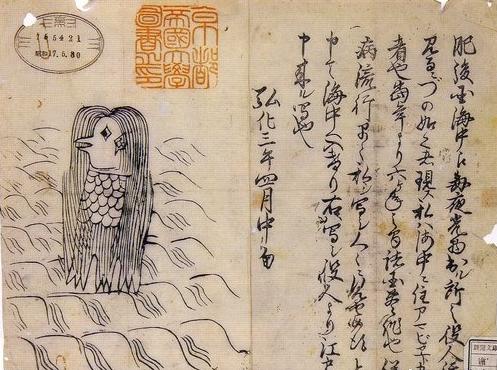 165421
昭和17.5.30
京都
帝國大學
圖書之印
肥後国海中え毎夜光物出ル所之役人行
見るニづの如く者現ス私ハ海中ニ住アマビヱト申
者也当年より六ヶ年之間諸国豊作也併
病流行早々私シ写シ人々ニ見せ候得と
申て海中へ入けり右ハ写シ役人より江戸
申来ル写也
弘化三年四月中旬